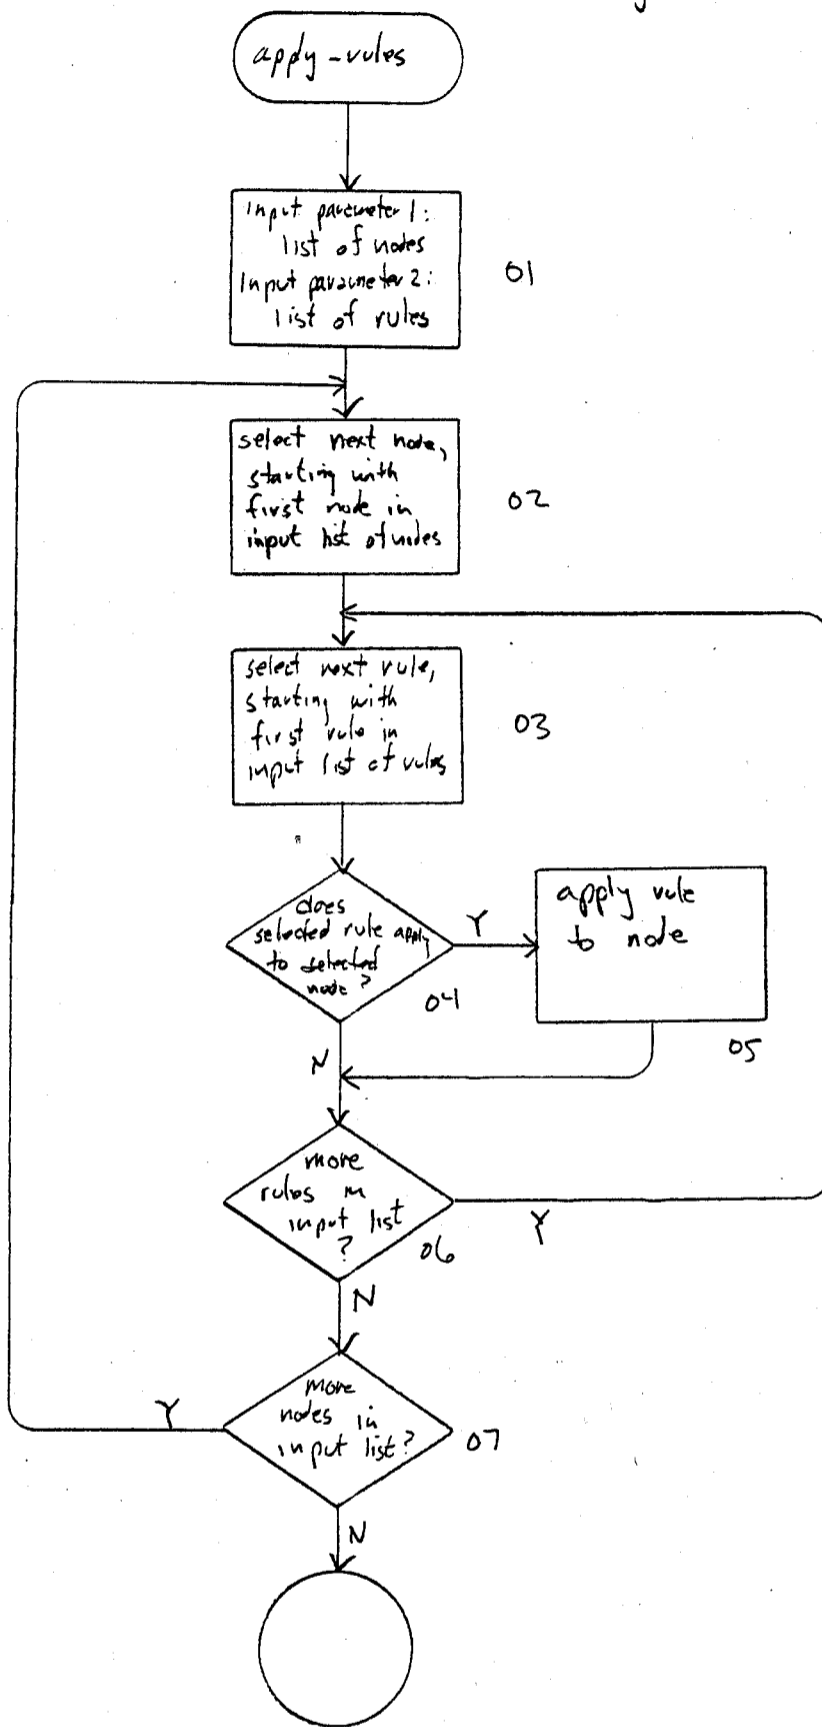 apply-rules
Input parameter 1:
list of nodes
Input parameter 2:
list of rules
01
select next node,
starting with
first node in
input list of nodes
02
select next rule,
starting with
first rule in
input list of rules
03
does
selected rule apply
to selected
node?
04
Y
apply rule
to node
05
N
more
rules in
input list
?
06
Y
N
more
nodes in
input list?
07
Y
N